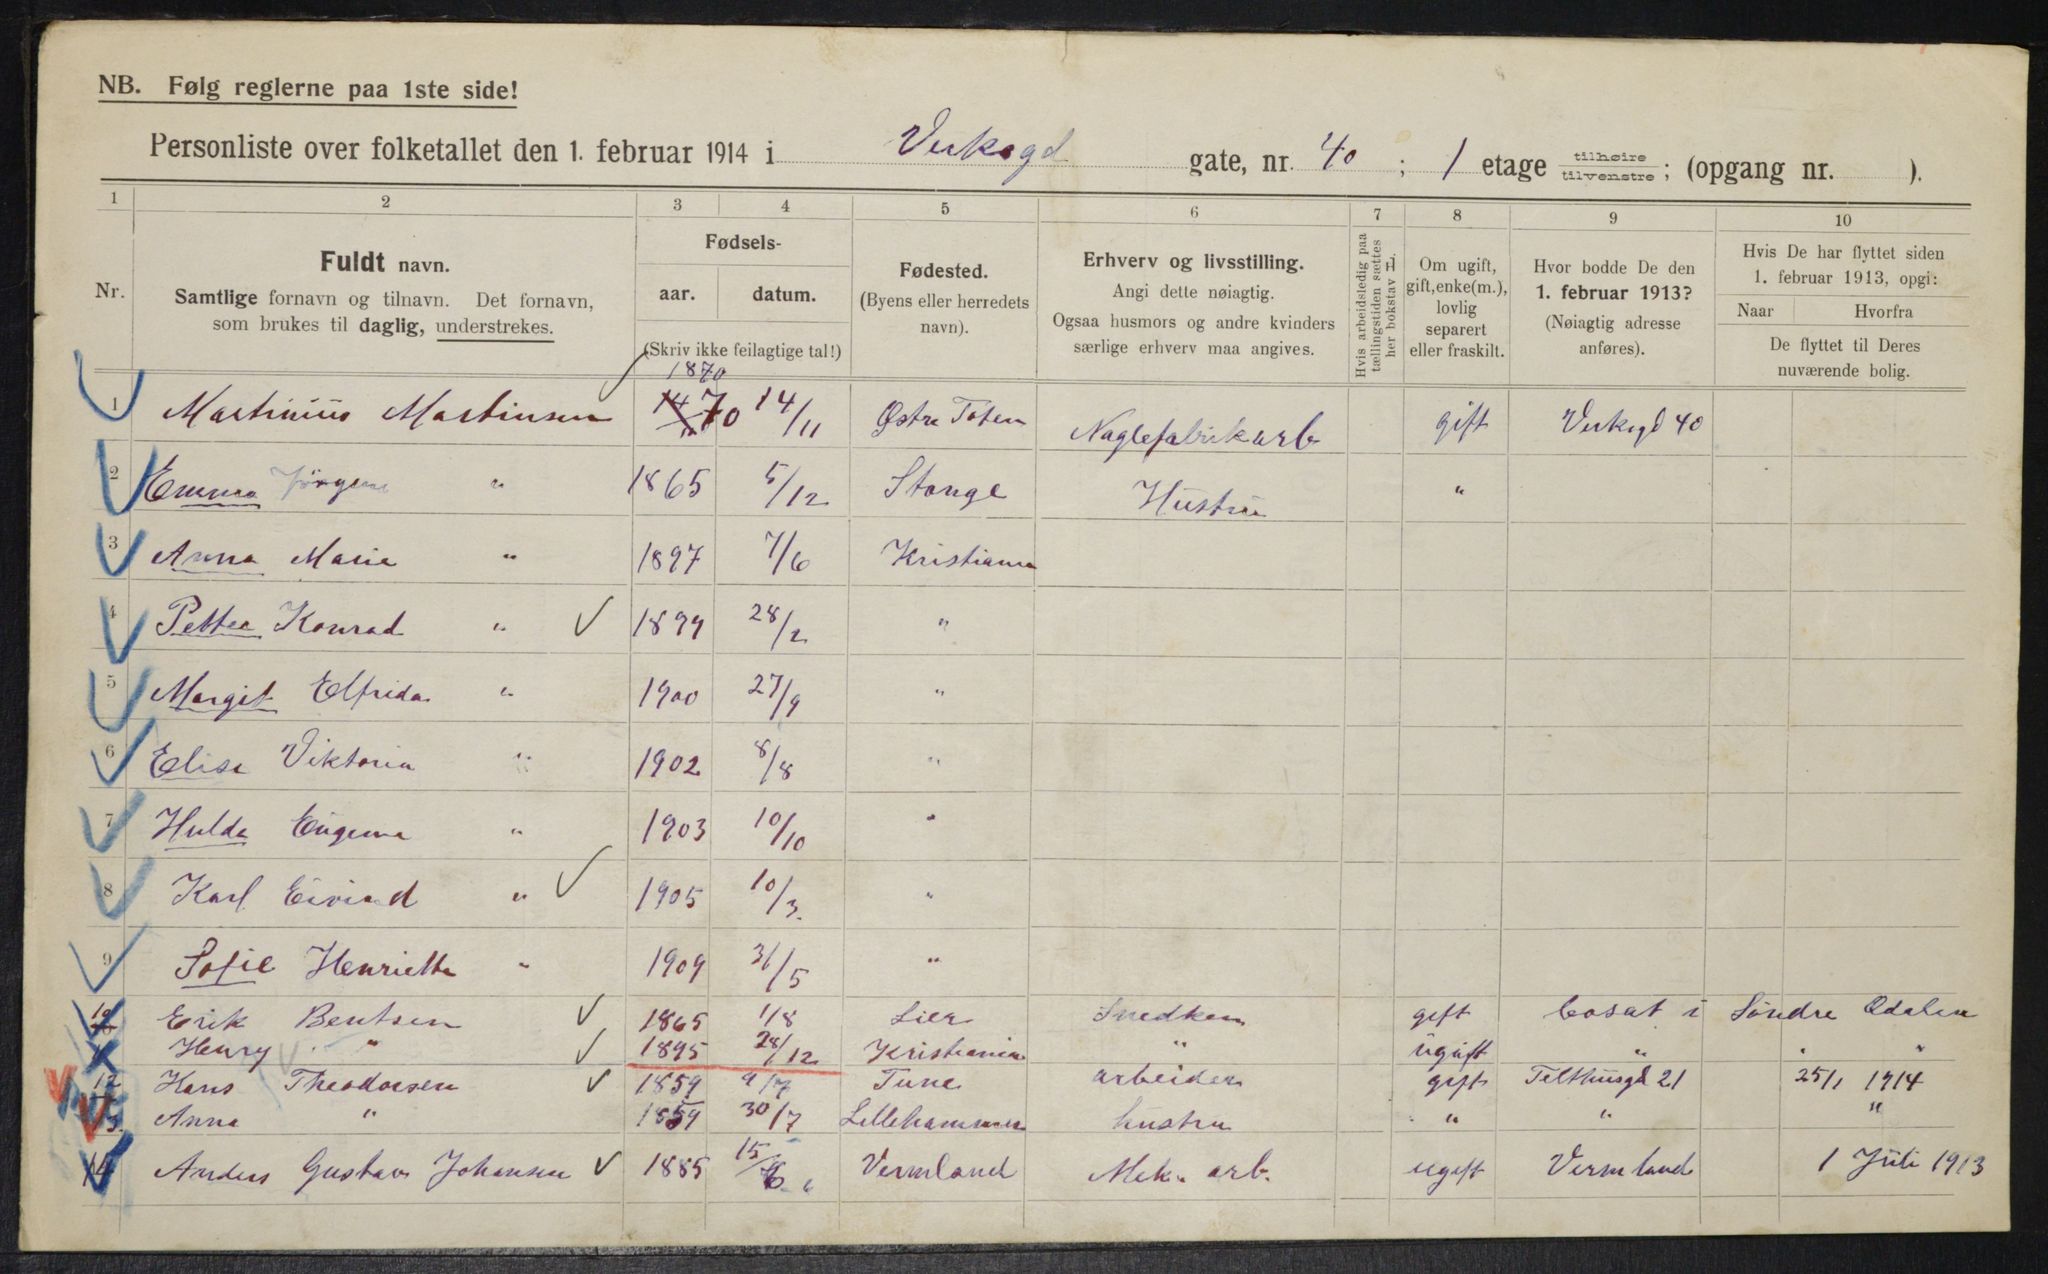 NB. Følg reglerne paa 1ste side!
Personliste over folketallet den 1. februar 1914 i Verksgd gate, nr. 40 ; 1 etage tilhøire tilvenstre ; (opgang nr. ).
1 2 3 4 5 6 7 8 9 10
Nr.
Fuldt navn.
Samtlige fornavn og tilnavn. Det fornavn,
som brukes til daglig, understrekes.
Fødsels-
aar. datum.
(Skriv ikke feilagtige tal!)
Fødested.
(Byens eller herredets
navn).
Erhverv og livsstilling.
Angi dette nøiagtig.
Ogsaa husmors og andre kvinders
særlige erhverv maa angives.
Hvis arbeidsledig paa
tællingstiden sættes
her bokstav L.
Om ugift,
gift, enke(m.),
lovlig
separert
eller fraskilt.
Hvor bodde De den
1. februar 1913?
(Nøiagtig adresse
anføres).
Hvis De har flyttet siden
1. februar 1913, opgi:
Naar Hvorfra
De flyttet til Deres
nuværende bolig.
1870
1 Martinius Martinsen 70 14/11 Østre Toten Naglefabrikarb gift Verksgd 40
2 Emma Jörgine " 1865 5/12 Stange Hustru "
3 Anna Marie " 1897 7/6 Kristiania
4 Petter Konrad " 1899 28/2 "
5 Margit Elfrida " 1900 27/9 "
6 Elise Viktoria " 1902 8/8 "
7 Hulda Eugenia " 1903 10/10 "
8 Karl Eivind " 1905 10/3 "
9 Sofie Henriette " 1909 31/5 "
10 Erik Bentsen 1865 1/8 Lier Snedker gift bosat i Söndre Odalen
Henry " 1895 28/12 Kristiania " ugift " " "
12 Hans Theodorsen 1859 9/7 Tune arbeider gift Telthusgd 21 25/1 1914
13. Anna " 1859 30/7 Lillehammer hustru " " "
14 Anders Gustav Johansen 1885 15/6 Vermland Mek. arb. ugift Vermland 1 Juli 1913